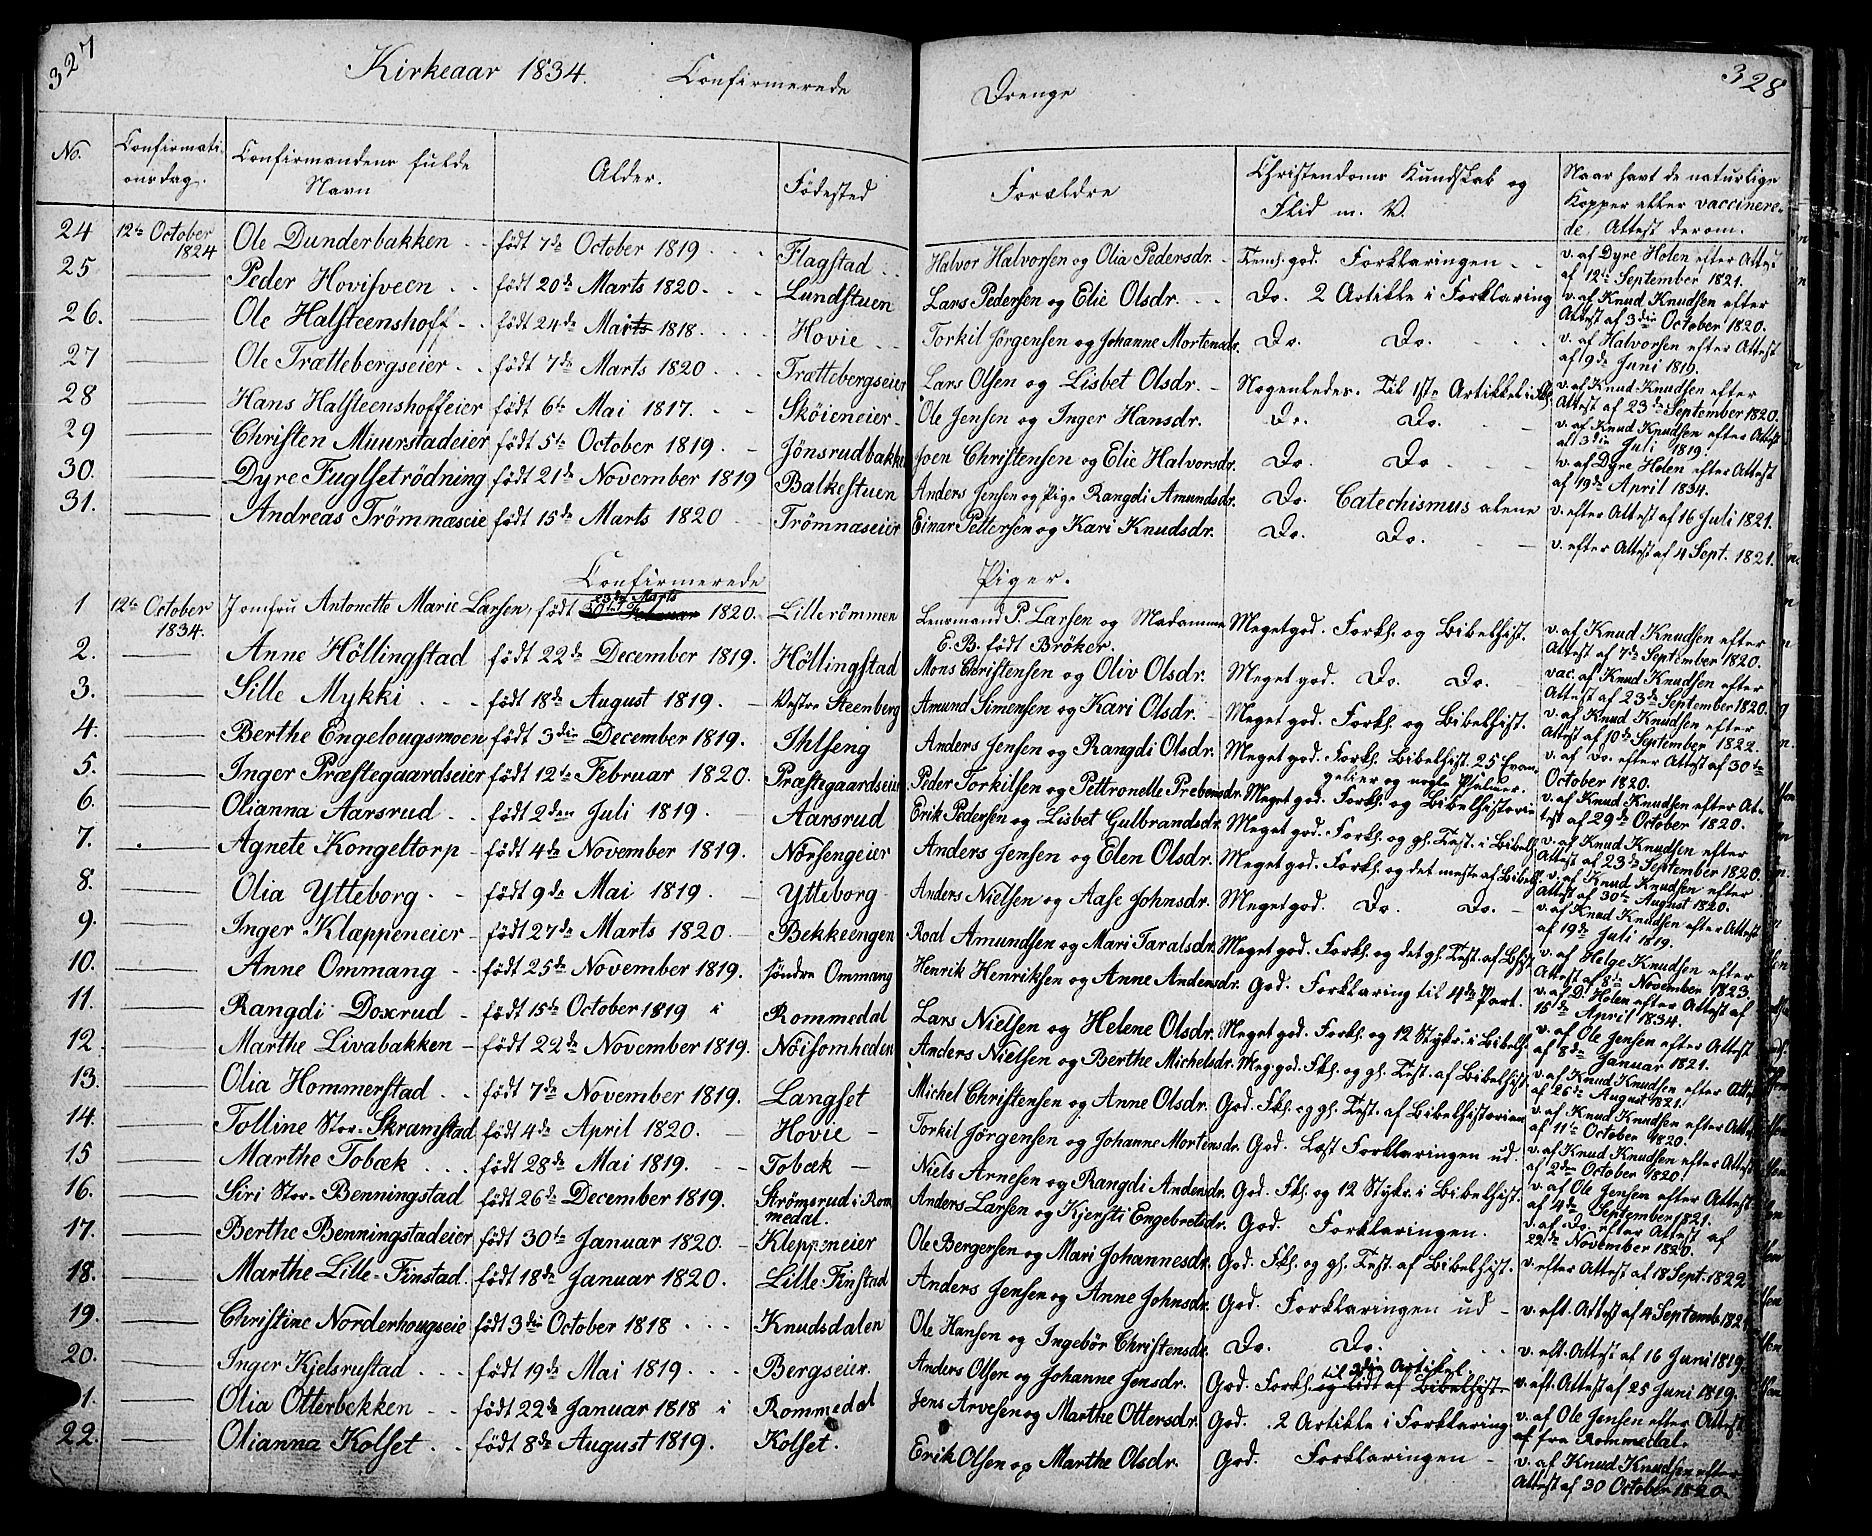 327
Kirkeaar 1834. Confirmerede
Drenge
328
No. Confirmati- onsdag. Confirmandens fulde Navn Alder. Födested Forældre Christendoms Kundskab og Flid m. V. Naar havt de naturlige Kopper eller vaccinere- de, Attest derom.
24 12te October 1824 Ole Dunderbakken födt 7de October 1819 Flagstad Halvor Halvorsen og Olia Pedersdr. Temd. god. Forklaringen v. af Dyre Holen efter Attest af 12te September 1821.
25 Peder Hovisveen födt 20de Marts 1820 Lundstuen Lars Pedersen og Elie Olsdr. Do. 2 Artikle i Forklaring v. af Knud Knudsen efter Attest af 3die October 1820.
26. Ole Halsteenshoff födt 24de Marts 1818. Hovie Torkil Jörgensen og Johanne Mortensdr. Do. Do. v. af Halvorsen efter Attest af 9de Juni 1819.
27 Ole Trættebergseier födt 7de Marts 1820 Trættebergseier Lars Olsen og Lisbet Olsdr. Nogenledes. Til 1ste Artikkel v. af Knud Knudsen efter Attest af 23de September 1820.
28 Hans Halsteenshoffeier födt 6te Mai 1817. Sköieneier Ole Jensen og Inger Hansdr. Do. Do. v. af Knud Knudsen efter Attest af 3die Juli 1819.
29 Christen Muurstadeier födt 5te October 1819. Jönsrudbakken Joen Christensen og Elie Halvorsdr. Do. Do v. af Dyre Holen efter Attest af 19de April 1834.
30. Dyre Fuglsetrödning födt 21de November 1819 Balkestuen Anders Jensen og Pige Rangdi Amundsdr. Do. Catechismus alene v. efter Attest af 16 Juli 1821.
31. Andreas Trömnæseie födt 15de Marts 1820 Trömnæseier Einar Pettersen og Kari Knudsdr. Do. Do. v. efter Attest af 4 Sept. 1821.
Confirmerede Piger.
1 12te October 1834. Jomfru Antonette Marie Larsen, födt 23de Marts 1820. Lille römmen Lensmand P. Larsen og Madamme E. B. födt Bröker. Meget god. Forkl. og Bibelhist. v. af Knud Knudsen efter Attest af 7de September 1820.
2. Anne Höllingstad födt 22de December 1819. Höllingstad Mons Christensen og Oliv Olsdr. Meget god. Do. Do. vac. af Knud Knudsen efter Attest af 23de September 1820.
3. Sille Mykki födt 18de August 1819. Vestre Steenberg Amund Simensen og Kari Olsdr. Meget god. Forkl. og Bibelhist. v. af Knud Knudsen efter Attest af 10de September 1822.
4. Berthe Engelougsmoen födt 3die December 1819. Ihlseng Anders Jensen og Rangdi Olsdr. Meget god. Forkl. Bibelhist. 25 Evan- gelier og nogle Psalmer. v. af Do. efter Attest af 30te October 1820.
5. Inger Præstegaardseier födt 12te Februar 1820. Præstegaardseier Peder Torkilsen og Pettronelle Prebensdr. Meget god. Forkl. og Bibelhistorie v. af Knud Knudsen efter At- test af 29de October 1820.
6. Olianna Aarsrud födt 2den Juli 1819. Aarsrud Erik Pedersen og Lisbet Gulbrandsdr. Meget god. Forkl. og gl. Test. i Bibelh. v. af Knud Knudsen efter Attest af 23de September 1820.
7. Agnete Kongeltorp födt 4de November 1819. Nörsengeier Anders Jensen og Elen Olsdr. Meget god. Forkl. og det meste af Bibelh. v. af Knud Knudsen efter Attest af 30te August 1820.
8. Olia Ytteborg födt 9de Mai 1819. Ytteborg Anders Nielsen og Aase Johnsdr. Meget god. Do. Do. v. af Knud Knudsen efter Attest af 19de Juli 1819.
9. Inger Klæppeneier födt 27de Marts 1820. Bekkeengen Roal Amundsen og Mari Taralsdr. Meget god. Forkl. og det gl. Test. af Bhist. v. af Helge Knudsen efter Attest af 8de November 1823.
10. Anne Ommang födt 25de November 1819. söndre Ommang Henrik Henriksen og Anne Andersdr. God. Forklaring til 4de Part. v. af D. Holen efter Attest af 15de April 1834.
11. Rangdi Doxrud födt 15de October 1819 i Rommedal Lars Nielsen og Helene Olsdr. Meget god. Forkl. og 12 Stykr. i Bibelh. v. af Ole Jensen efter Attest af 8de Januar 1821.
12. Marthe Livabakken födt 22de November 1819. Nöisomheden Anders Nielsen og Berthe Michelsdr. Meg. god. Fkl. og gl. Test. af Bibelhist. v. af Knud Knudsen efter Attest af 26de August 1821.
13. Olia Hommerstad födt 7de November 1819. Langset Michel Christensen og Anne Olsdr. God. Fkl. og gl. Test. af Bibelhistorien v. af Knud Knudsen efter Attest af 11te October 1820.
14. Tolline Stor-Skramstad födt 4de April 1820. Hovie Torkil Jörgensen og Johanne Mortensdr. God. Læst Forklaringen ud. v. af Knud Knudsen efter Attest af 2den October 1820.
15 Marthe Tobæk födt 28de Mai 1819. Tobæk Niels Arnesen og Rangdi Andersdr. God. Fkl. og 12 Stykr. i Bibelhist. v. af Ole Jensen efter Attest af 4de September 1821.
16. Siri Stor-Benningstad födt 26de December 1819. Strömsrud i Rom- medal. Anders Larsen og Kjersti Engebretsdr. God. Forklaringen. v. af Do. efter Attest af 22de November 1820.
17. Berthe Benningstadeier födt 30te Januar 1820. Kleppeneier Ole Bergersen og Mari Johannesdr. God. Fkl. og gl. Test. af Bibelhist. v. efter Attest af 18 Sept. 1822
18. Marthe Lille-Finstad. födt 18de Januar 1820. Lille Finstad Anders Jensen og Anne Johnsdr. God. Forklaringen ud v. eft. Attest af 4 Septemb. 182
19. Christine Norderhougseie födt 3die October 1818 Knudsdalen Ole Hansen og Ingebör Christensdr. Do. Do. v. eft. Attest af 16 Juni 1819
20. Inger Kjelsrustad födt 19de Mai 1819. Bergseier. Anders Olsen og Johanne Jensdr. God. Forkl. til 2die Artikel og lidt af Bibelhist. v. eft. Attest af 25 Juni 1819.
1. Olia Otterbekken födt 22de Januar 1818 i Rommedal Jens Arvesen og Marthe Ottersdr. God. 2 Artikle i Forklaring v. af Ole Jensen efter Attest af fra Rommedal.
22. Olianna Kolset födt 8de August 1819. Kolset. Erik Olsen og Marthe Olsdr. God. Forklaringen v. af Knud Knudsen efter Attest af 30 October 1820.